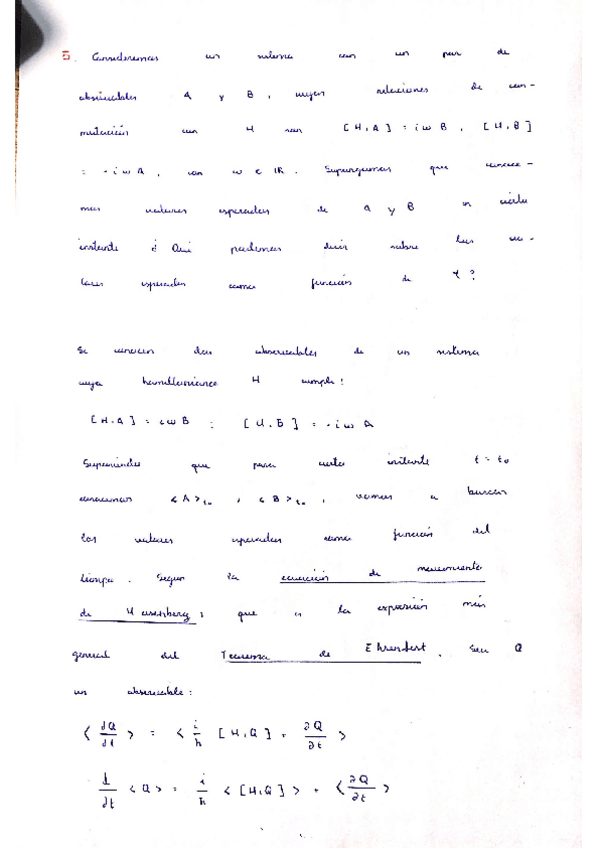 5. Consideremos un sistema con un par de
observables A y B, cuyas relaciones de con-
mutación con H son [H,A] = iωB, [H,B]
= -iωA, con ω ∈ IR. Supongamos que conoce-
mos valores esperados de A y B en cierto
instante ¿Qué podemos decir sobre los va-
lores esperados como función de t?
Se conocen dos observables de un sistema
cuyo hamiltoniano H cumple:
[H,A] = iωB ; [H,B] = -iωA
Suponiendo que para cierto instante t = t₀
conocemos <A>t₀, <B>t₀, vamos a buscar
los valores esperados como función del
tiempo. Según la ecuación de movimiento
de Heisenberg; que es la expresión más
general del Teorema de Ehrenfest. Sea Q
un observable:
⟨dQ/dt⟩ = ⟨i/ħ [H,Q] + ∂Q/∂t⟩
d/dt <Q> = i/ħ <[H,Q]> + ⟨∂Q/∂t⟩